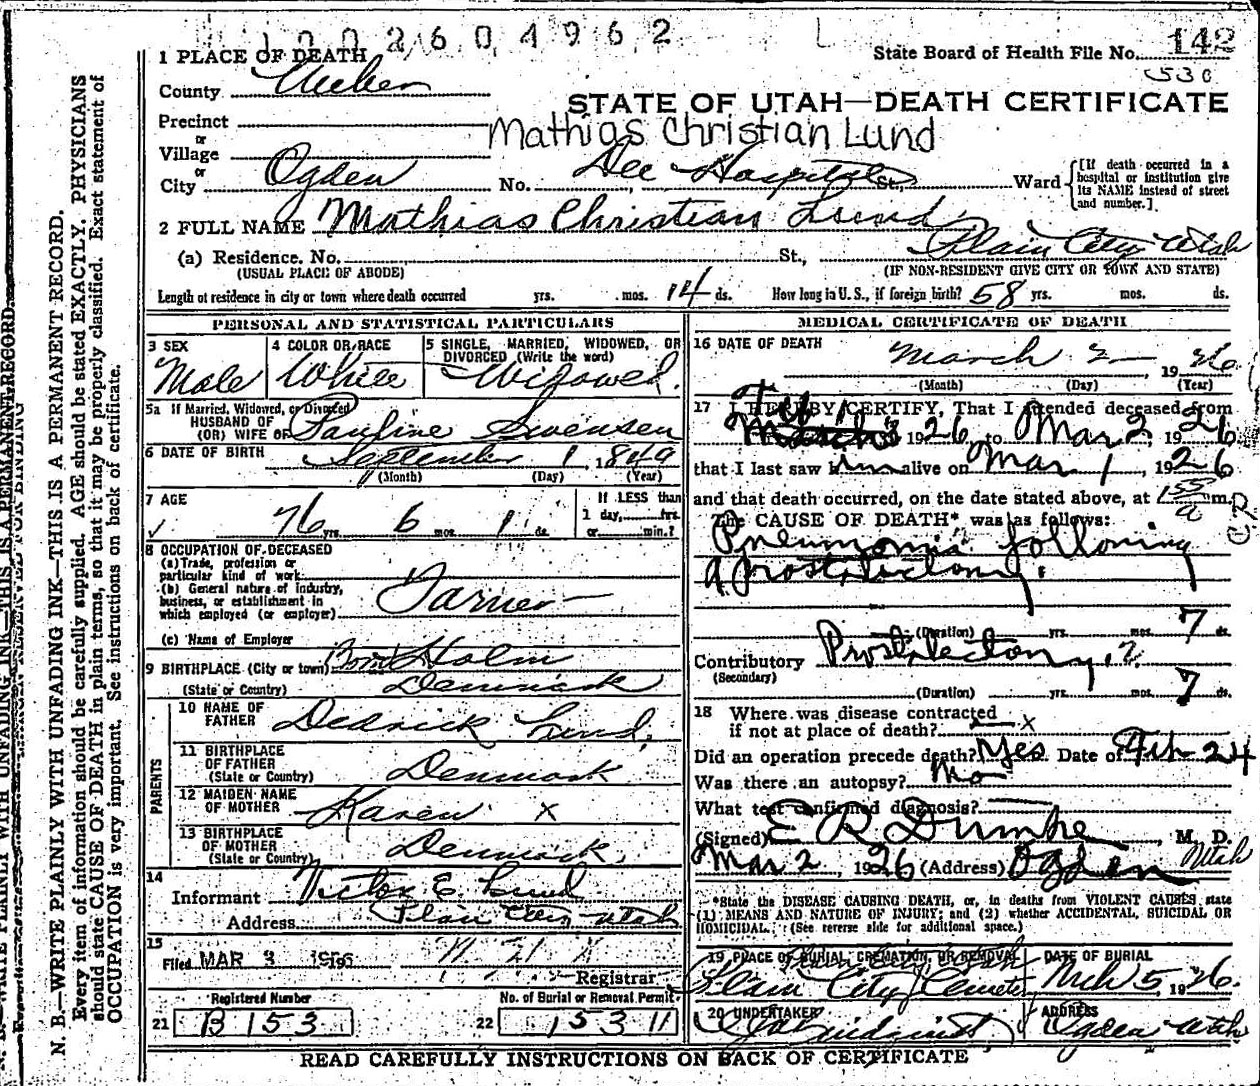 1 2 0 2 6 0 4 9 6 2
1 PLACE OF DEATH
State Board of Health File No. 142
530
County Weber
STATE OF UTAH—DEATH CERTIFICATE
Precinct
or
Mathias Christian Lund
Village
or
City Ogden No. Dee Hospital St., Ward
[If death occurred in a hospital or institution give its NAME instead of street and number.]
2 FULL NAME Mathias Christian Lund
(a) Residence. No. St., Plain City Utah
(USUAL PLACE OF ABODE) (IF NON-RESIDENT GIVE CITY OR TOWN AND STATE)
Length of residence in city or town where death occurred yrs. mos. 14 ds. How long in U. S., if foreign birth? 58 yrs. mos. ds.
PERSONAL AND STATISTICAL PARTICULARS
3 SEX
Male
4 COLOR OR RACE
White
5 SINGLE, MARRIED, WIDOWED, OR
DIVORCED (Write the word)
Widowed.
5a If Married, Widowed, or Divorced
HUSBAND OF
(OR) WIFE OF Pauline Swensen
6 DATE OF BIRTH September 1, 1849
(Month) (Day) (Year)
7 AGE
76 yrs. 6 mos. 1 ds.
If LESS than
1 day, hrs.
or min.?
8 OCCUPATION OF DECEASED
(a) Trade, profession or
particular kind of work
(b) General nature of industry,
business, or establishment in
which employed (or employer) Farmer
(c) Name of Employer
9 BIRTHPLACE (City or town) Born Holm
(State or Country) Denmark
PARENTS
10 NAME OF
FATHER Dedrick Lund.
11 BIRTHPLACE
OF FATHER
(State or Country) Denmark
12 MAIDEN NAME
OF MOTHER Karen X
13 BIRTHPLACE
OF MOTHER
(State or Country) Denmark.
14
Informant Victor E. Lund
Address Plain City Utah
15
Filed MAR 3 1926
Registrar
Registered Number
21 B 153
No. of Burial or Removal Permit
22 153 11
MEDICAL CERTIFICATE OF DEATH
16 DATE OF DEATH March 2 1926
(Month) (Day) (Year)
17 I HEREBY CERTIFY, That I attended deceased from
1926 to Mar 2, 1926
that I last saw him alive on Mar 1, 1926
and that death occurred, on the date stated above, at 1 55 a m.
The CAUSE OF DEATH* was as follows:
Pneumonia following
a prostatectomy
(Duration) yrs. mos. 7 ds.
Contributory Prostatectomy
(Secondary)
(Duration) yrs. mos. 7 ds.
18 Where was disease contracted
if not at place of death? X
Did an operation precede death? Yes Date of Feb 24
Was there an autopsy? No
What test confirmed diagnosis?
(Signed) E R Dumke, M. D.
Mar 2, 1926 (Address) Ogden Utah
*State the DISEASE CAUSING DEATH, or, in deaths from VIOLENT CAUSES, state
(1) MEANS AND NATURE OF INJURY; and (2) whether ACCIDENTAL, SUICIDAL OR
HOMICIDAL. (See reverse side for additional space.)
19 PLACE OF BURIAL, CREMATION, OR REMOVAL
Plain City Utah
Plain City Cemetery
DATE OF BURIAL
Mch 5, 1926.
20 UNDERTAKER
Lindquist
ADDRESS
Ogden Utah
READ CAREFULLY INSTRUCTIONS ON BACK OF CERTIFICATE
N. B.—WRITE PLAINLY WITH UNFADING INK—THIS IS A PERMANENT RECORD.
Every item of information should be carefully supplied. AGE should be stated EXACTLY. PHYSICIANS
should state CAUSE OF DEATH in plain terms, so that it may be properly classified. Exact statement of
OCCUPATION is very important. See instructions on back of certificate.